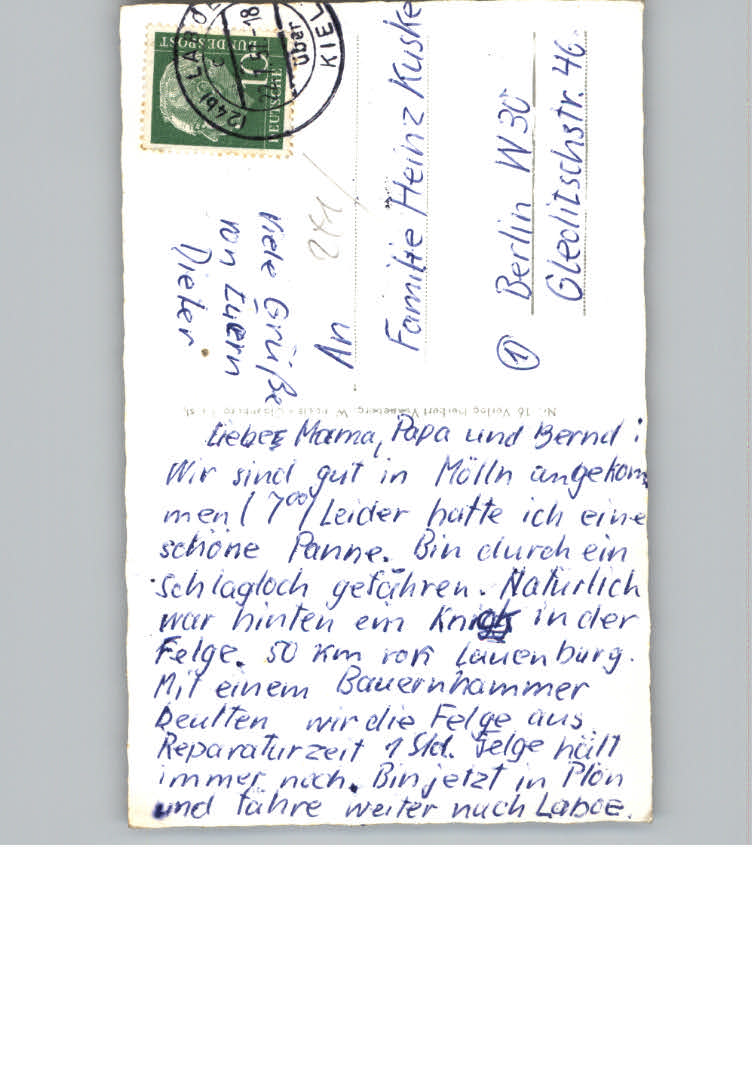 Liebe Mama, Papa und Bernd!
Wir sind gut in Mölln angekom
men (7⁰⁰) Leider hatte ich eine
schöne Panne. Bin durch ein
Schlagloch gefahren. Natürlich
war hinten ein Knick in der
Felge. 50 km vor Lauenburg.
Mit einem Bauernhammer
beulten wir die Felge aus
Reparaturzeit 1 Std. Felge hält
immer noch. Bin jetzt in Plön
und fahre weiter nach Laboe.
Viele Grüße
von Euern
Dieter
An
Familie Heinz Kuske
① Berlin W 30
Gleditschstr. 46
DEUTSCHE
BUNDESPOST
10
(24b) LABOE
über
KIEL
-18